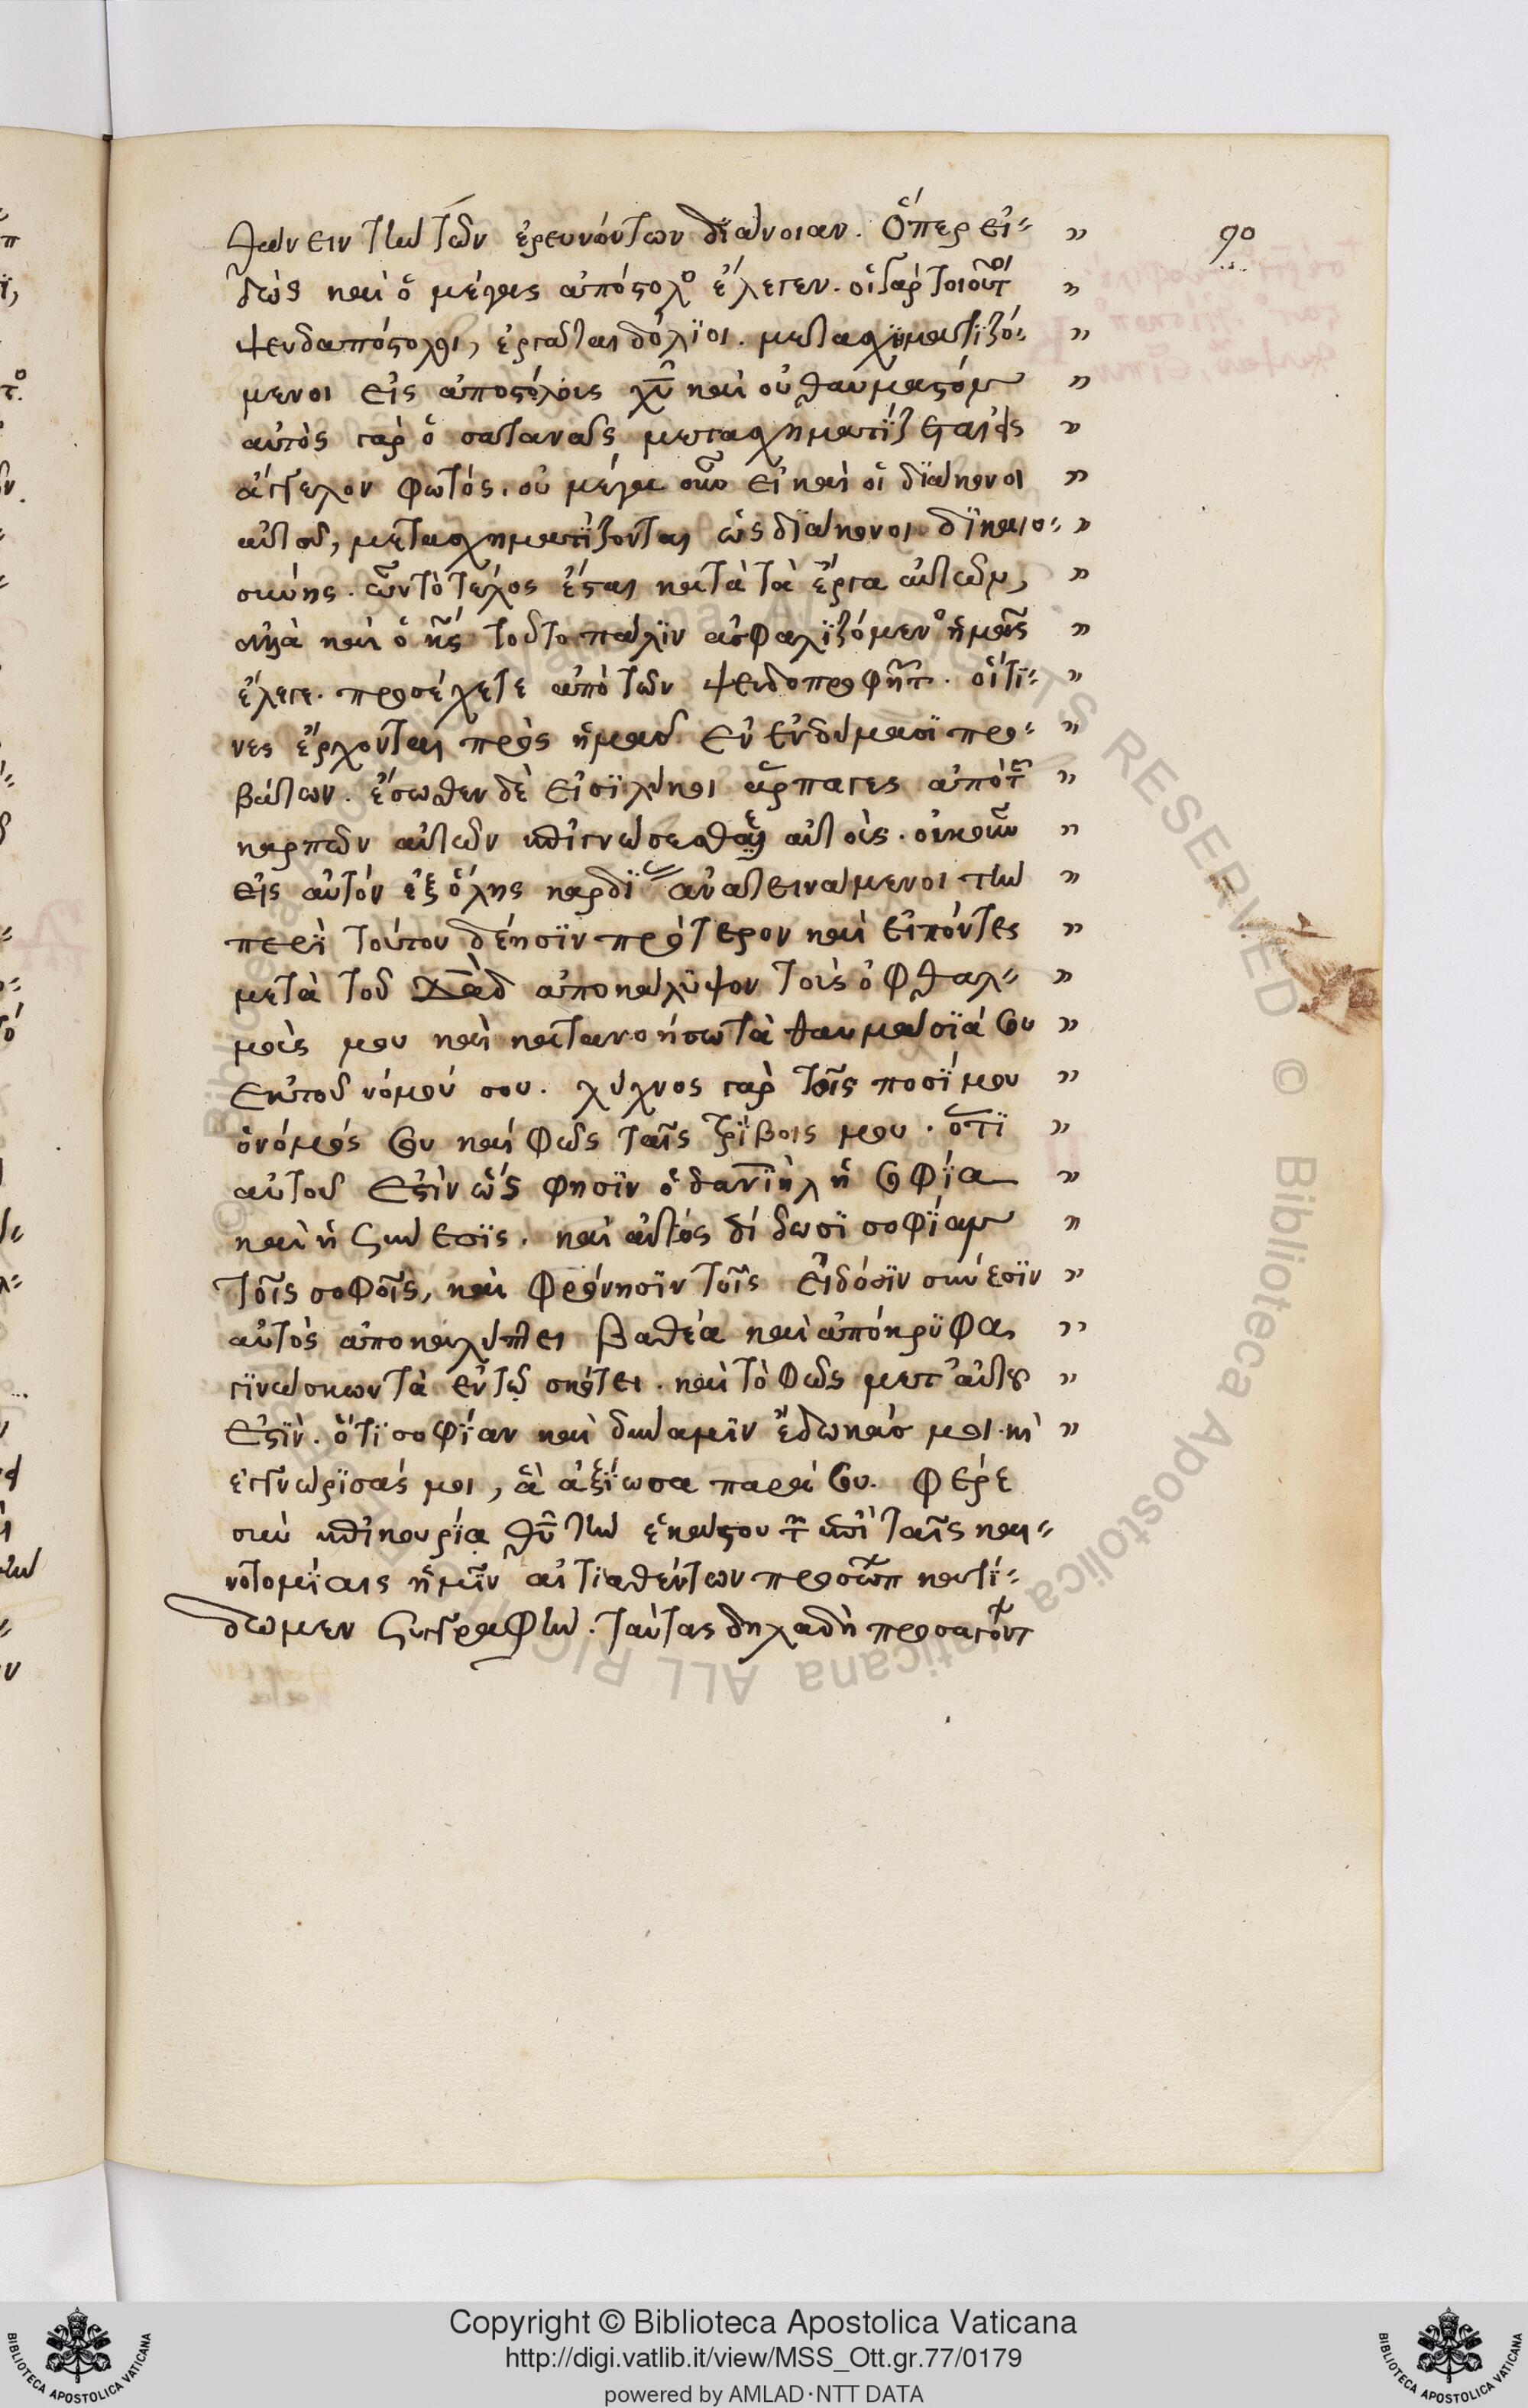 λιχνεύειν τὴν τῶν ἐρευνόντων διάνοιαν. Ὅπερ εἰ= "
δὼς καὶ ὁ μέγας ἀπόστολος ἔλεγεν. οἱ γὰρ τοιοῦτοι "
ψευδαπόστολοι, ἐργάται δόλϊοι. μετασχηματϊζό= "
μενοι εἰς ἀποστόλους χυ καὶ οὐ θαυμαστόν "
αὐτὸς γὰρ ὁ σατανᾶς μετασχηματίζεται εἰς "
ἄγγελον φωτός. οὐ μέγα οὖν εἰ καὶ οἱ διάκονοι "
αὐτοῦ, μετασχηματίζονται ὡς διάκονοι δϊκαιο= "
σύνης. ὧν τὸ τέλος ἔσται κατὰ τὰ ἔργα αὐτῶν, "
ἀλλὰ καὶ ὁ κς τοῦτο πάλϊν ἀσφαλϊζόμενος ἡμᾶς "
ἔλεγε. προσέχετε ἀπὸ τῶν ψευδοπροφητῶν. οἵτι= "
νες ἔρχονται πρὸς ἡμᾶς ἐν ἐνδύμασϊ προ= "
βάτων. ἔσωθεν δὲ εἰσὶ λύκοι ἅρπαγες ἀπὸ τῶν "
καρπῶν αὐτῶν ἐπιγνώσεσθαι αὐτούς. οὐκοῦν "
εἰς αὐτόν ἐξ ὅλης καρδίας ἀνατεινάμενοι τὴν "
περὶ τούτου δέησϊν πρότερον καὶ εἰπόντες "
μετὰ τοῦ δαδ ἀποκάλυψον τοὺς ὀφθαλ= "
μούς μου καὶ κατανοήσω τὰ θαυμάσϊά σου "
ἐκ τοῦ νόμου σου. λύχνος γὰρ τοῖς ποσί μου "
ὁ νόμος σου καὶ φῶς ταῖς τρίβοις μου. ὅτϊ "
αὐτοῦ ἐστὶν ὥς φησϊν ὁ δανϊὴλ ἡ σοφία "
καὶ ἡ σύνεσϊς. καὶ αὐτός δίδωσϊ σοφίαν "
τοῖς σοφοῖς, καὶ φρόνησϊν τοῖς εἰδόσϊν σύνεσϊν "
αὐτὸς ἀποκαλύπτει βαθέα καὶ ἀπόκρυφα, "
γϊνώσκων τὰ ἐν τῷ σκότει. καὶ τὸ φῶς μετ' αὐτοῦ "
ἐστίν. ὅτϊ σοφίαν καὶ δύναμϊν ἔδωκάς μοι. καὶ "
ἐγνώρισάς μοι, ἃ ἀξίωσα παρά σου. φέρε
σὺν ἐπικουρία θυ τὴν ἑκάστου τῶν ἐπὶ ταῖς και=
νοτομίαις ἡμῖν αἰτιαθέντων προσώπων κατί=
δωμεν συγγραφὴν. ταύτας δηλαδὴ προσαγόντων
90
Copyright © Biblioteca Apostolica Vaticana
http://digi.vatlib.it/view/MSS_Ott.gr.77/0179
powered by AMLAD·NTT DATA